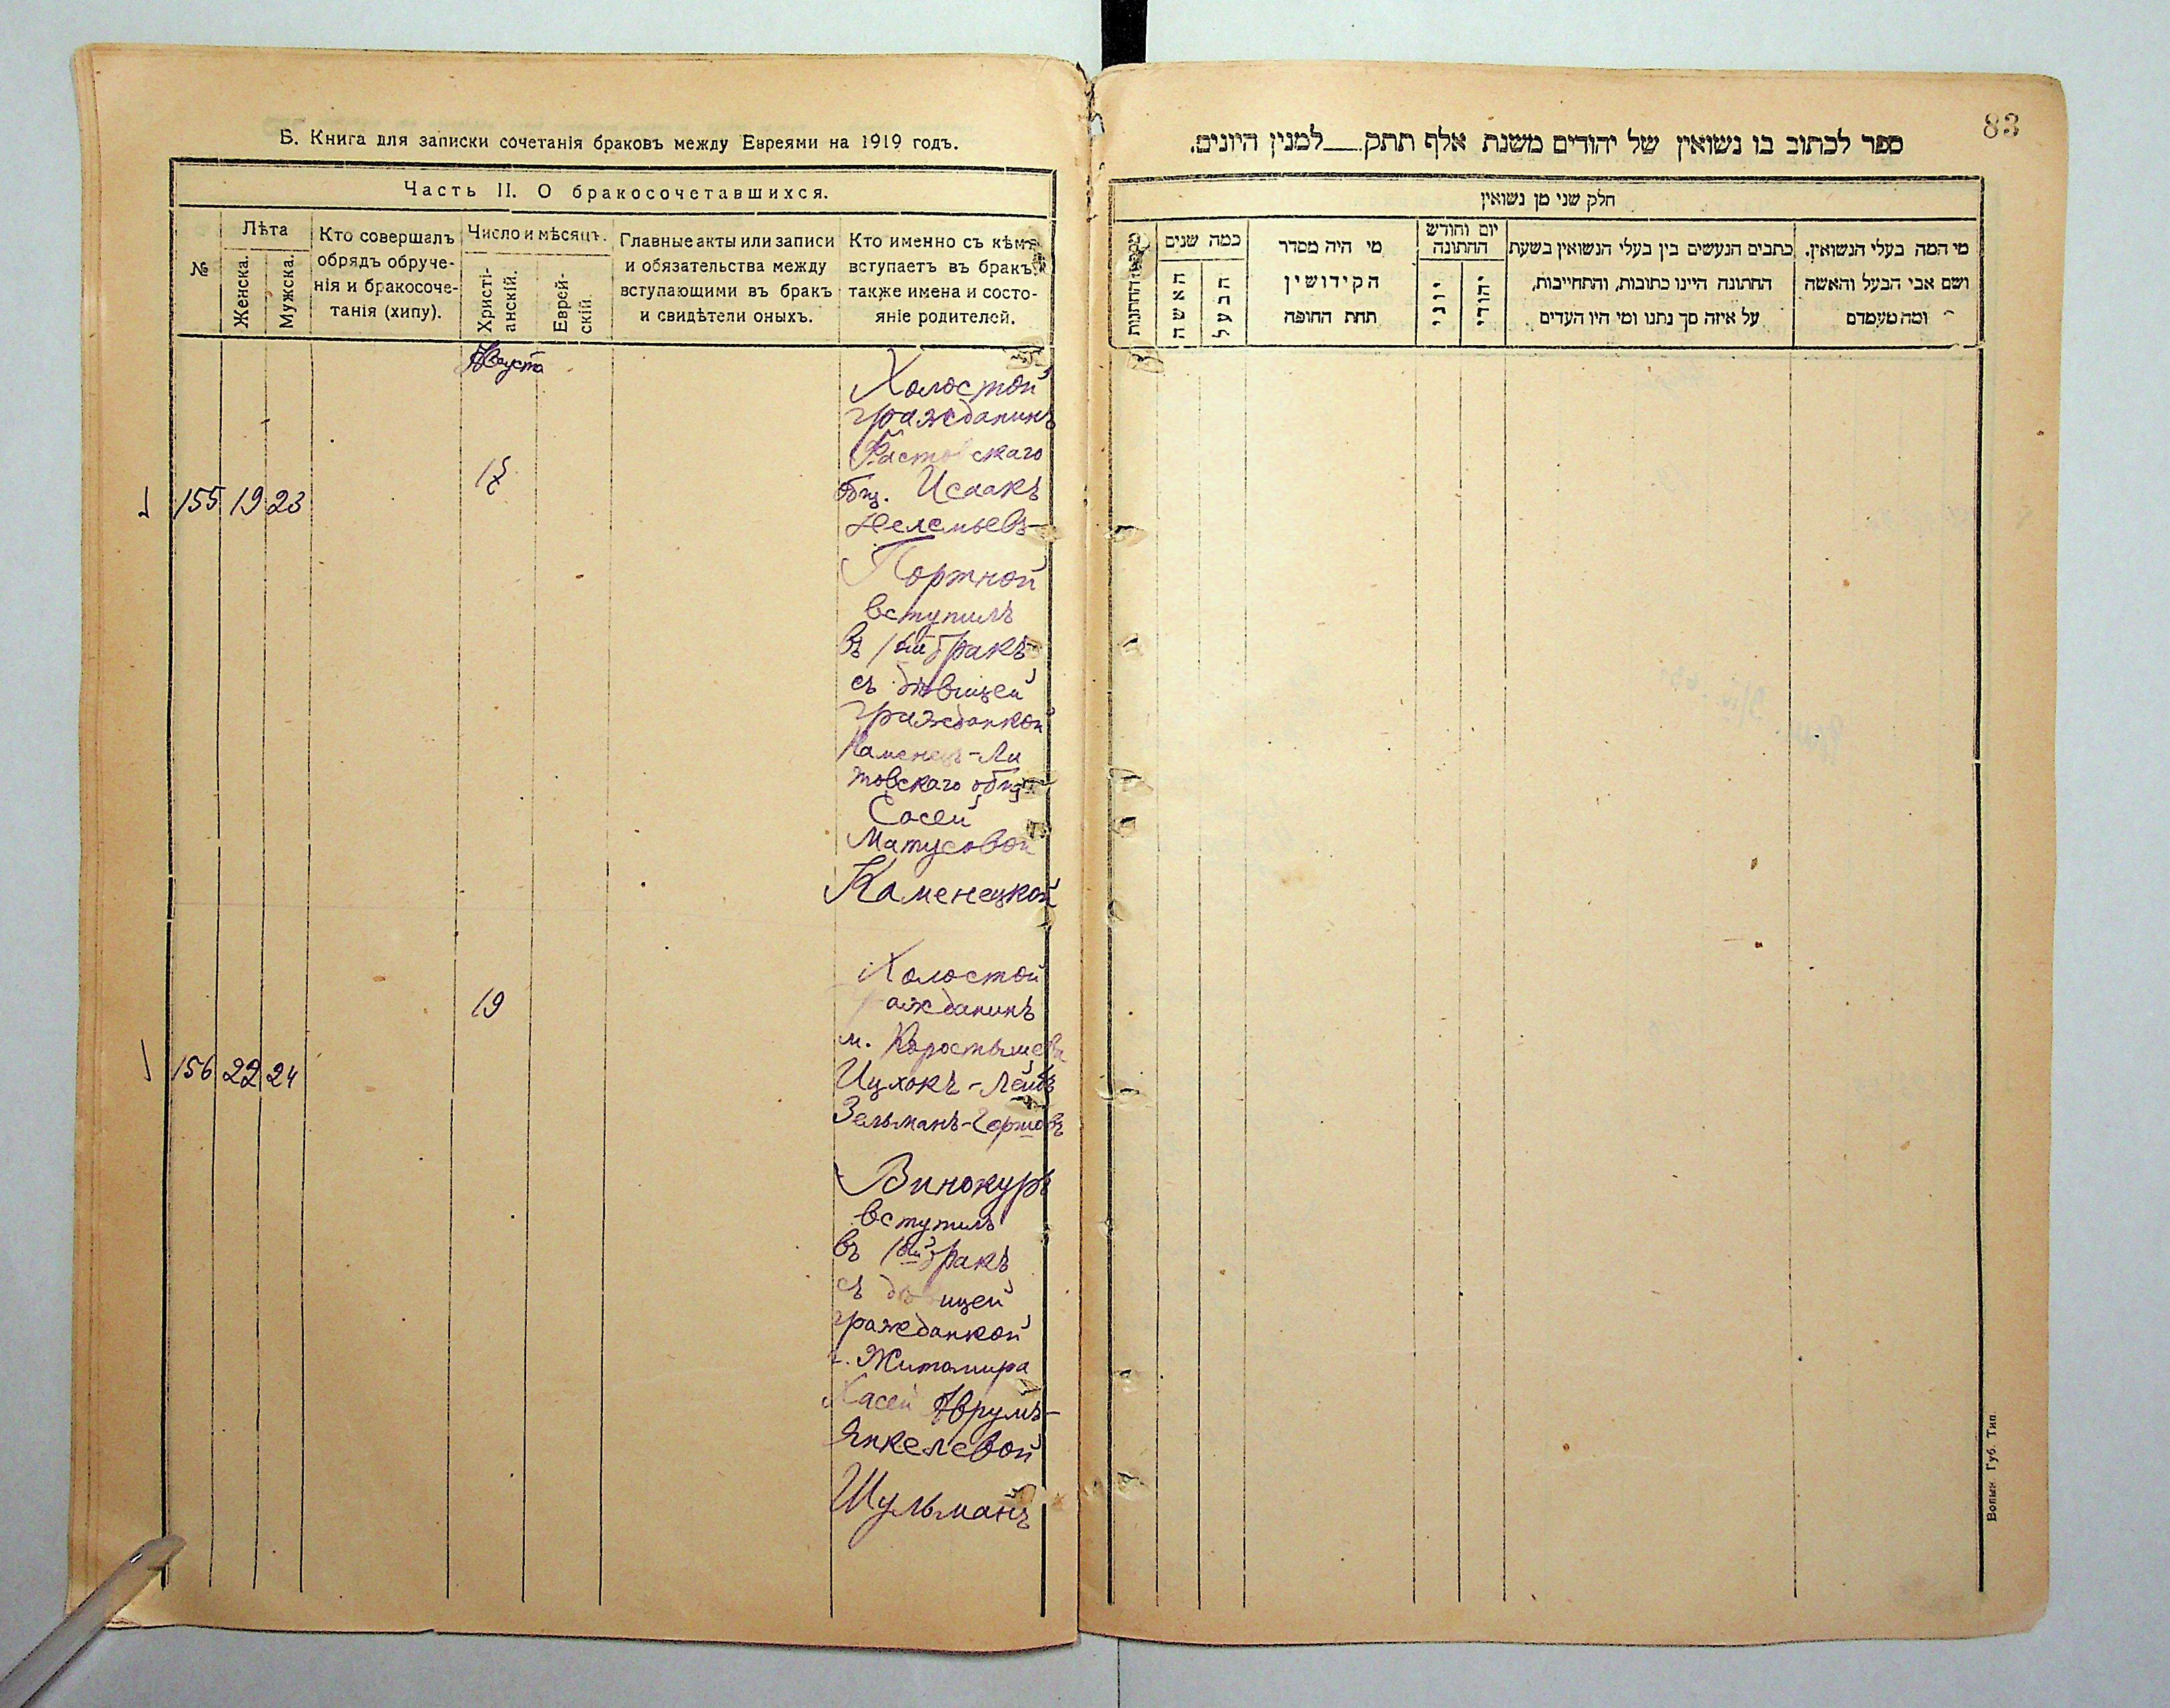 Б. Книга для записки сочетанія браковъ между Евреями на 1919 годъ.
Часть II. О бракосочетавшихся.
№
Лѣта
Женска.
Мужска.
Кто совершалъ
обрядъ обруче-
нія и бракосоче-
танія (хипу).
Число и мѣсяцъ.
Христі-
анскій.
Еврей-
скій.
Главные акты или записи
и обязательства между
вступающими въ бракъ
и свидѣтели оныхъ.
Кто именно съ кѣмъ
вступаетъ въ бракъ,
также имена и состо-
яніе родителей.
Августа
155 19 23
Холостой
гражданинъ
Фастовскаго
общ. Исаакъ
Портной
вступилъ
въ 1ый бракъ
съ дѣвицей
гражданкой
Каменецъ-Ли
товскаго общ.
Сосей
Матусовой
Каменецкой
156 22 24
19
Холостой
ажданинъ
м. Коростышева
Ицхокъ-Лейбъ
Зельманъ-Гершовъ
Винокуръ
вступилъ
въ 1ый бракъ
съ дѣвицей
гражданкой
г. Житомира
Хасей Аврумъ-
Янкелевой
Шульманъ
83
ספר לכתוב בו נשואין של יהודים משנת אלף תתק למנין היונים.
חלק שני מן נשואין
כמה שנים
האשה
הבעל
מי היה מסדר
הקידושין
תחת החופה
יום וחודש
החתונה
יוני
יהודי
כתבים הנעשים בין בעלי הנשואין בשעת
החתונה היינו כתובות, והתחייבות,
על איזה סך נתנו ומי היו העדים
מי המה בעלי הנשואין.
ושם אבי הבעל והאשה
ומה מעמדם
Волын. Губ. Тип.